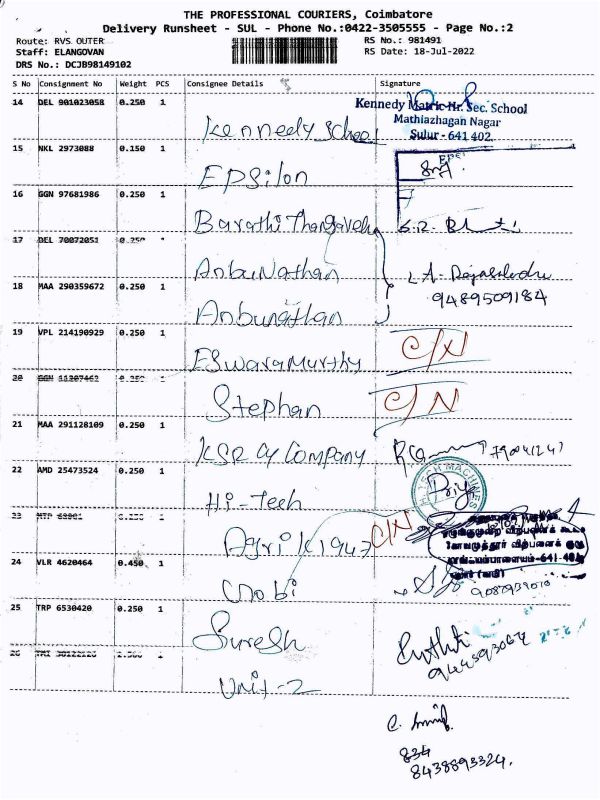 THE PROFESSIONAL COURIERS, Coimbatore
Delivery Runsheet - SUL - Phone No.:0422-3505555 - Page No.:2
Route: RVS OUTER
Staff: ELANGOVAN
DRS No.: DCJB98149102
RS No.: 981491
RS Date: 18-Jul-2022
S No Consignment No Weight PCS Consignee Details Signature
14 DEL 901023058 0.250 1 Kennedy School
Kennedy Matric Hr. Sec. School
Mathiazhagan Nagar
Sulur - 641 402.
15 NKL 2973088 0.150 1 EPSilon
16 GGN 97681986 0.250 1 Barathi Thangavelu
17 DEL 70072051 0.250 AnbuNathan
9489509184
18 MAA 290359672 0.250 1 Anbunathan
19 VPL 214190929 0.250 1 ESwaraMurthy C/N
20 GGN 11207462 0.250 1 Stephan C/N
21 MAA 291128109 0.250 1 KSR & Company
22 AMD 25473524 0.250 1 Hi-Tech
HI-TECH MACHINES
Priya
23 1 Agri K 1947 C/N
விற்பனைக்
கோயமுத்தூர் விற்பனைக் குழு
24 VLR 4620464 0.450 1 Gobi
25 TRP 6530420 0.250 1 Suresh
944593064
26 1 Unit-2
834
8438893324.